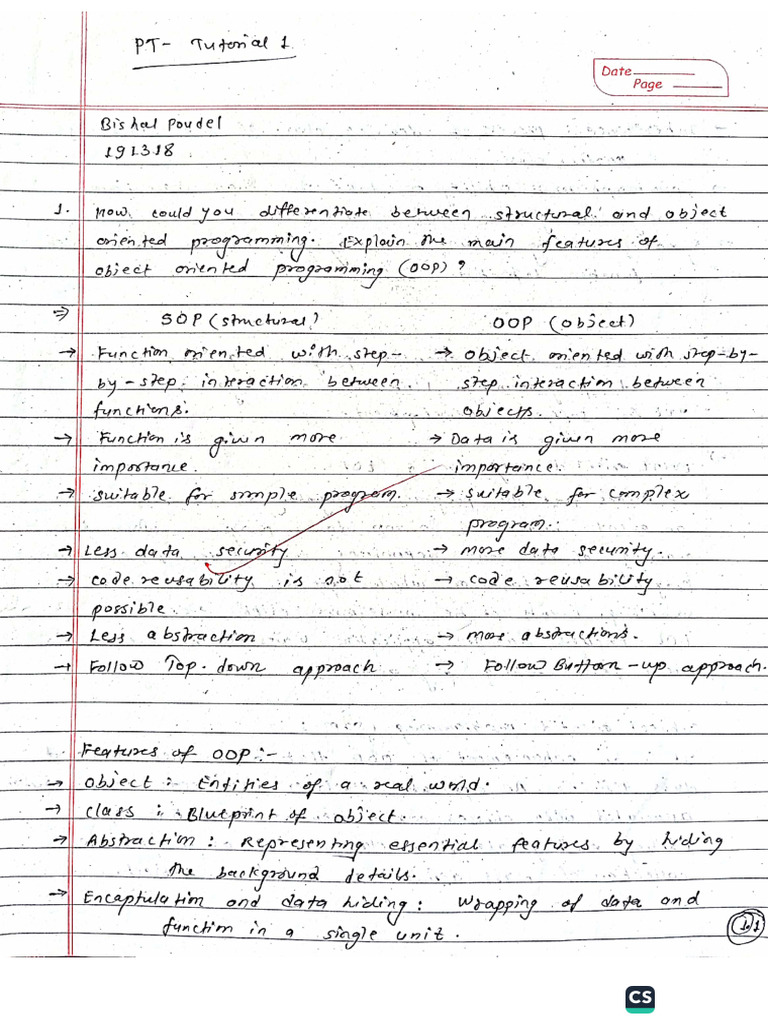 PT- Tutorial 1
Date
Page
Bishal Poudel
191318
1. How could you differentiate between structural and object
oriented programming. Explain the main features of
object oriented programming (OOP) ?
⇒ SOP (structural) OOP (object)
→ Function oriented with step- → object oriented with step-by-
by-step interaction between step interaction between
functions. objects.
→ Function is given more → Data is given more
importance. importance.
→ suitable for simple program. → suitable for complex
program.
→ Less data security → more data security.
→ code reusability is not → code reusability
possible.
→ Less abstraction → more abstractions.
→ Follow Top-down approach → Follow Buttom-up approach.
Features of OOP :-
→ object : Entities of a real world.
→ class : Blueprint of object.
→ Abstraction : Representing essential features by hiding
the background details.
→ Encaptulation and data hiding : Wrapping of data and
function in a single unit.
1.1
CS